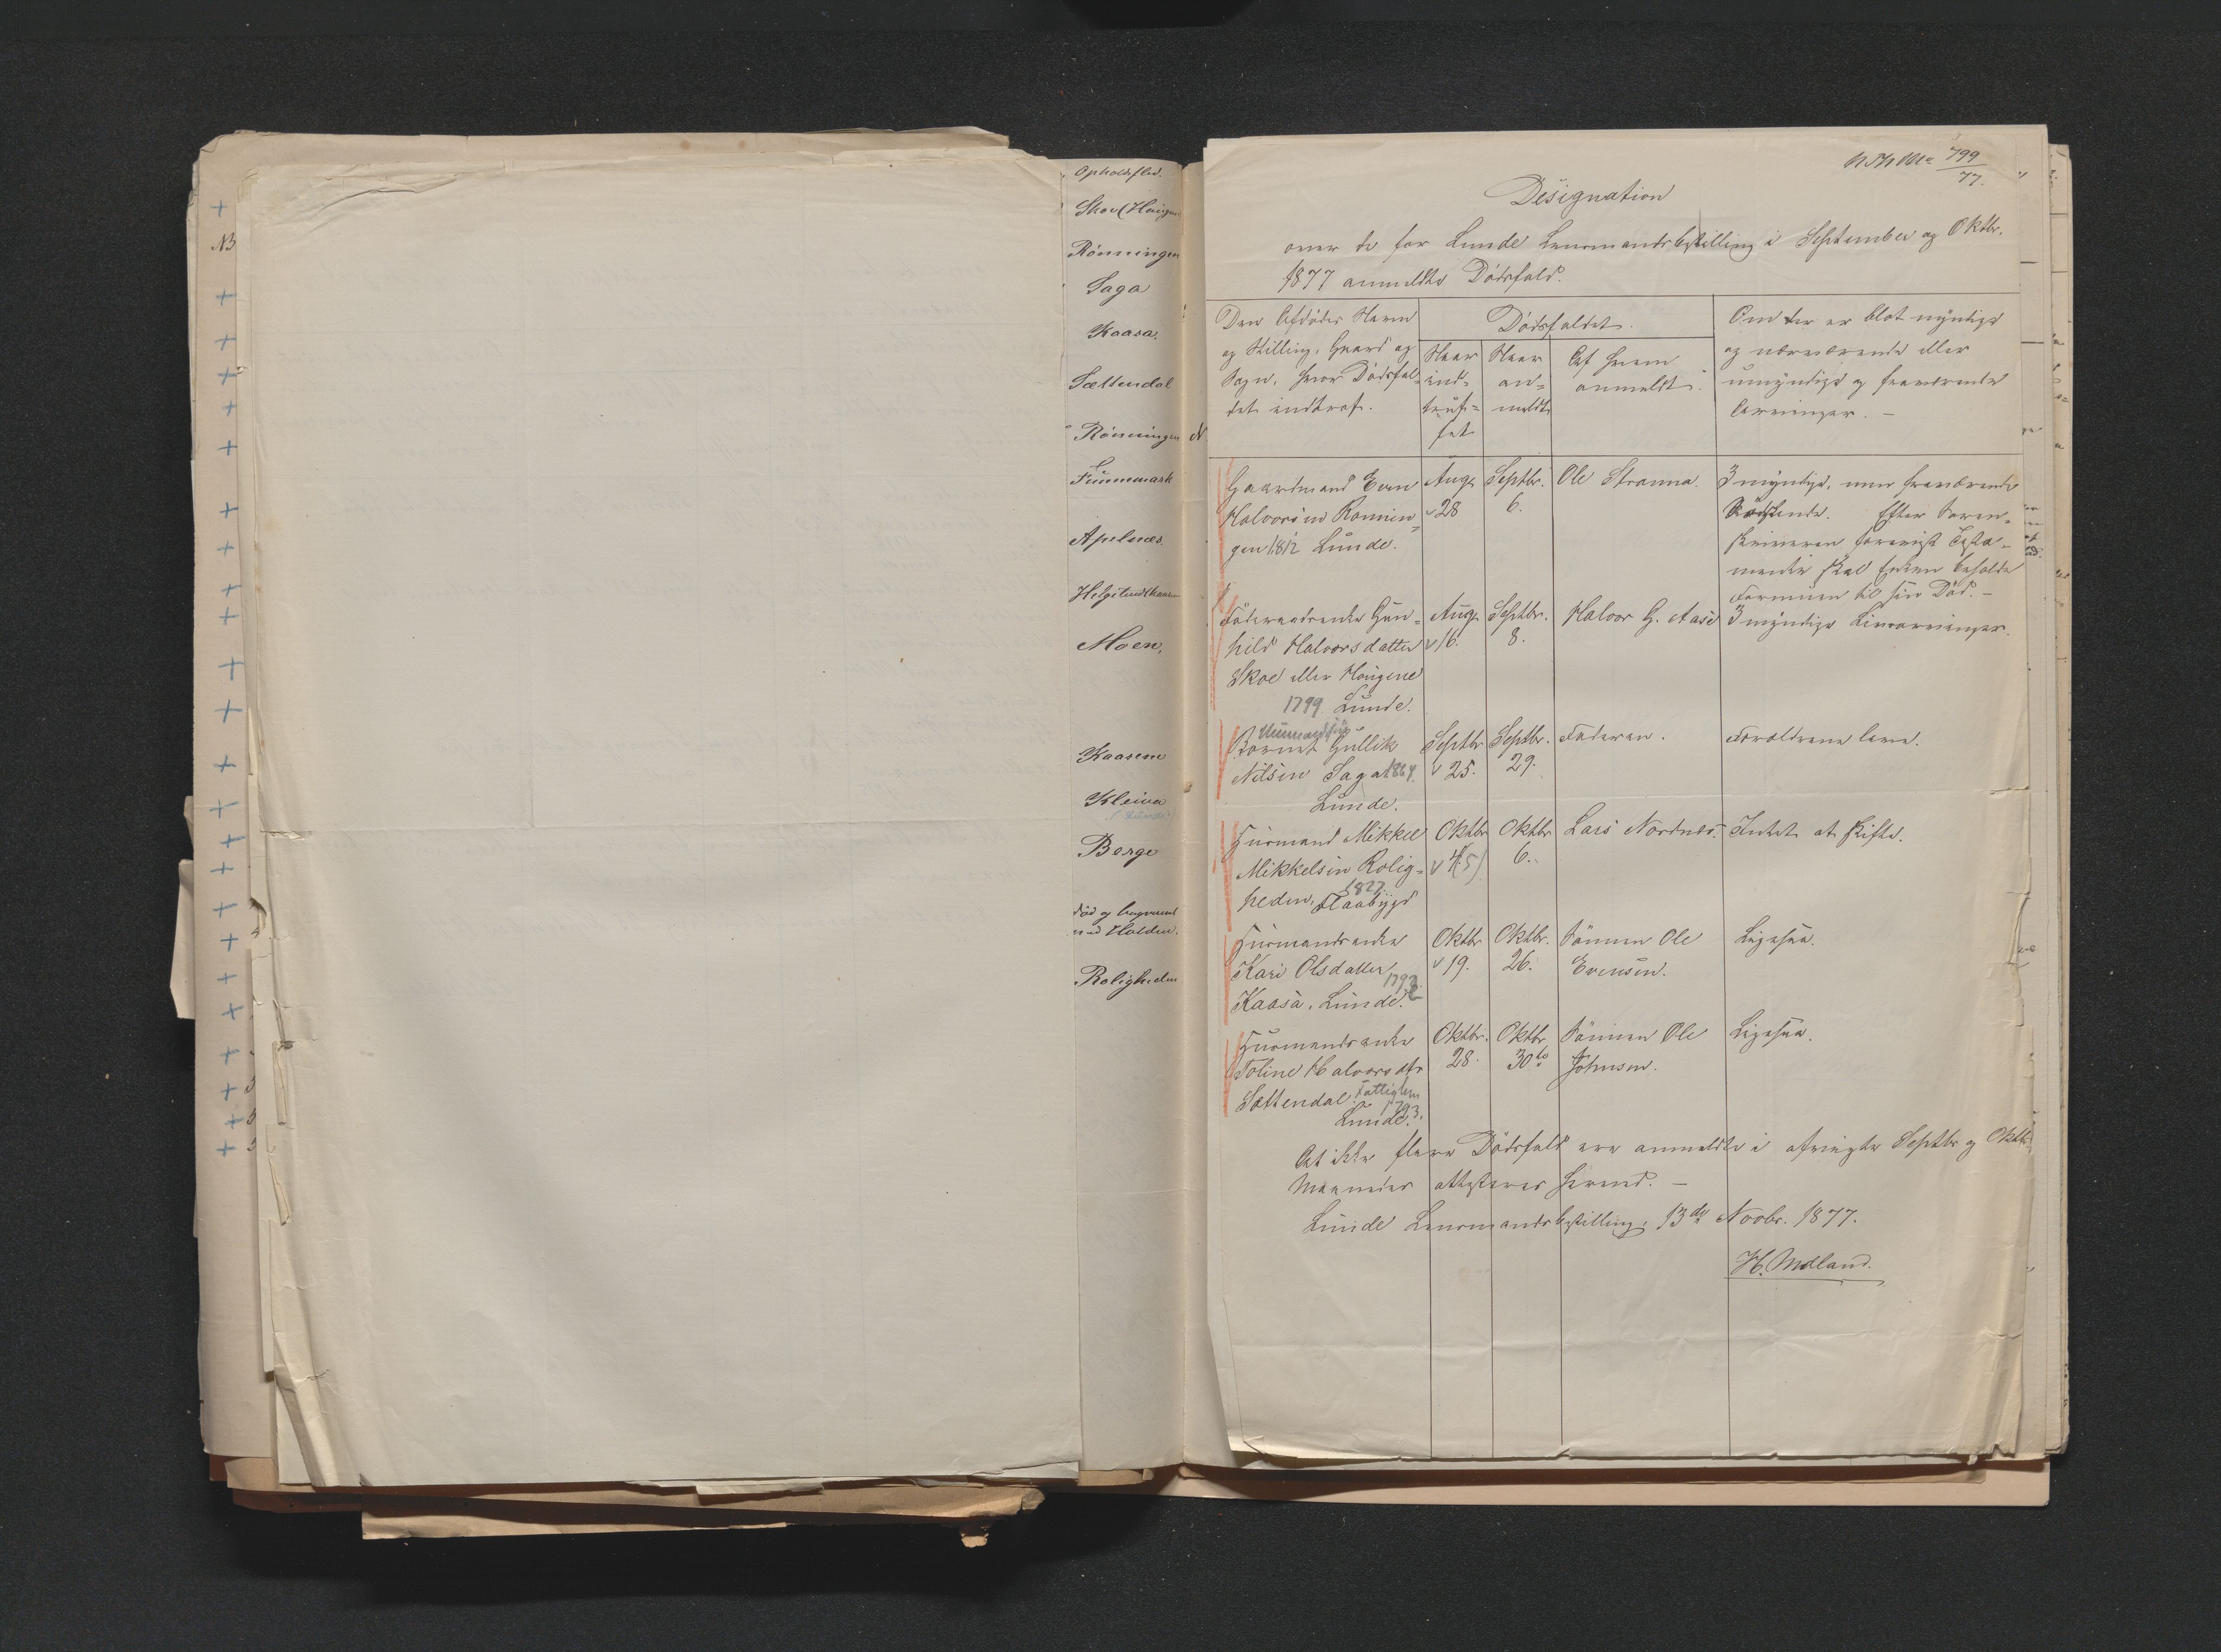 Opholdssted.
Skoe (Haugen
Rönningen
Saga
Kaasa.
Sættendal
Rönningen
Finnemark
Apelnæs.
Helgetundkaasen
Moen,
Kaasene
Kleiva
(Lunde)
Berge
død og begravet
ved Holden.
Roligheden
NB
799
77.
Designation
over de for Lunde Lensmandsbestilling i September og Oktbr.
1877 anmeldte Dödsfald.
Den Afdödes Navn
og Stilling, Gaard og
Sogn, hvor Dödsfal-
det indtraf.
Dödsfaldet.
Naar
ind-
truf-
fet
Naar
an-
meldt
Af hvem
anmeldt.
Om der er blot myndige
og nærværende eller
umyndige og fraværende
Arvinger. –
Gaardmand Even
Halvorsen Rønnin-
gen 1812 Lunde.
Aug.
28
Septbr.
6.
Ole Stranna.
3 myndige, men fraværende
Södskende. Efter Soren-
skriveren forevist Testa-
mente skal Enken beholde
Formuen til sin Död. –
Föderaadsenke Gun-
hild Halvorsdatter
Skoe eller Haugene
1799 Lunde.
Aug.
16.
Septbr.
8.
Halvor G. Aase
3 myndige Livsarvinger.
Barnet Gullik
Nilsen Saga 1864.
Lunde.
Septbr
25.
Septbr.
29.
Faderen.
Forældrene leve.
Husmand Mikkel
Mikkelsen Rolig-
heden, Flaabygd
1827.
Oktbr
4(5)
Oktbr
6.
Lars Nordnes.
Intet at skifte.
Husmandsenke
Kari Olsdatter
Kaasa, Lunde.
Oktbr
19.
Oktbr.
26.
Sönnen Ole
Evensen.
Ligesaa.
Husmandsenke
Toline Halvorsdtr
Sættendal. Fattiglem
1793.
Lunde.
Oktbr.
28.
Oktbr
30te
Sönnen Ole
Johnsen.
Ligesaa.
At ikke flere Dödsfald ere anmeldte i afvigte Septbr og Oktbr
Maaneder attesteres herved. –
Lunde Lensmandsbestilling, 13de Novbr. 1877.
H. Midland.